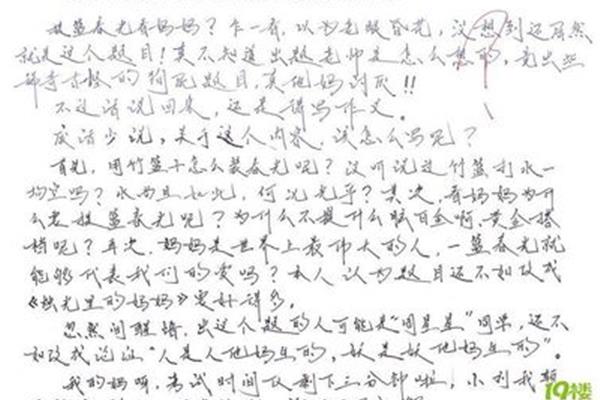 提篮春光看妈妈？乍一看，以为老眼昏花，没想到还居然
就是这个题目！真不知道出题老师是怎么想的，竟出些
稀奇古怪的狗屁题目，真他妈讨厌!!
不过话说回来，还是得写作文。
废话少说，关于这个内容，该怎么写呢？
首先，用竹篮子怎么装春光呢？没听说过竹篮打水一
场空吗？水尚且如此，何况光乎？其次，看妈妈为什
么老提篮春光呢？为什么不提什么脑白金啊，黄金搭
档呢？再次，妈妈是世界上最伟大的人，一篮春光就
能够代表我们的爱吗？本人认为题目还不如改成
《烛光里的妈妈》要好得多。
忽然间醒悟，出这个题的人可能是“周星星”同学，还不
如改成论证“人是人他妈生的，妖是妖他妈生的”。
我的妈呀，考试时间仅剩下三分钟啦，小利我
19楼